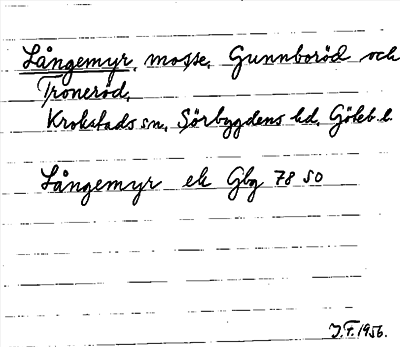 Långemyr, mosse, Gunnboröd och
Troneröd,
Krokstads sn, Sörbygdens hd, Göteb. l.
Långemyr ek Gbg 78 SO
J.F. 1956.